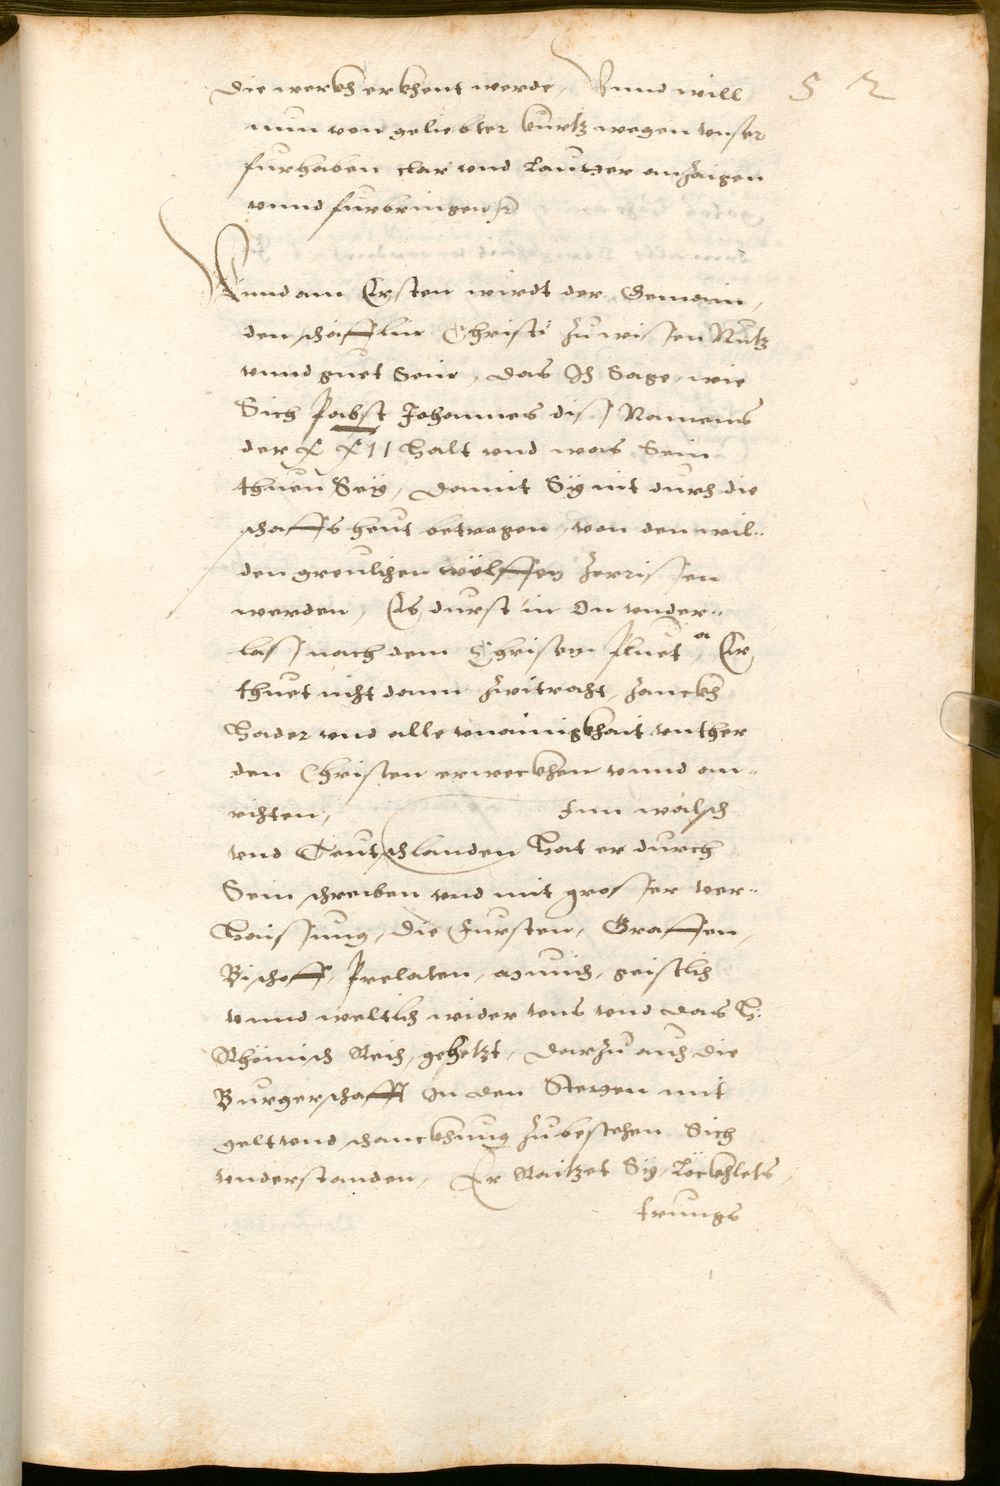 die werckh erkhent werde, Vnnd will
52
nun von geliebter kurtz wegen vnser
furhaben clar vnd lautter anzaigen
vnnd furbringen
Vnnd am Ersten wirdt der Gemain,
den schäfflin Christi zu wissen Nutz
vnnd guet Sein, das Ich Sage, wie
Sich Pabst Johannes diss Namens
der XXII halt vnd was Sein
thuen Sey, damit Sy nit durch die
schaffs heut betrogen, von den wil-
den greulichen wölffen zerrissen
werden, Es durst in On vnder-
lass nach dem Christen pluet, Er
thuet nicht dann zwitracht, zanckh
Hader vnd alle vnainigkhait vnther
den Christen erweckhen vnnd an-
richten, Inn wälsch
vnd Teutschlanden Hat er durch
Sein schreiben vnd mit grosser ver-
Haissung, die Fursten, Graffen,
Bischoff, Prelaten, Münich, geistlich
vnnd weltlich wider vns vnd das H.
Rhömisch Reich, gehetzt, darzu auch die
Burgerschafft In den Stetten mit
gelt vnd schanckhung zubestehen Sich
vnderstanden, Er Raitzet Sy, Löckhlets,
trungs